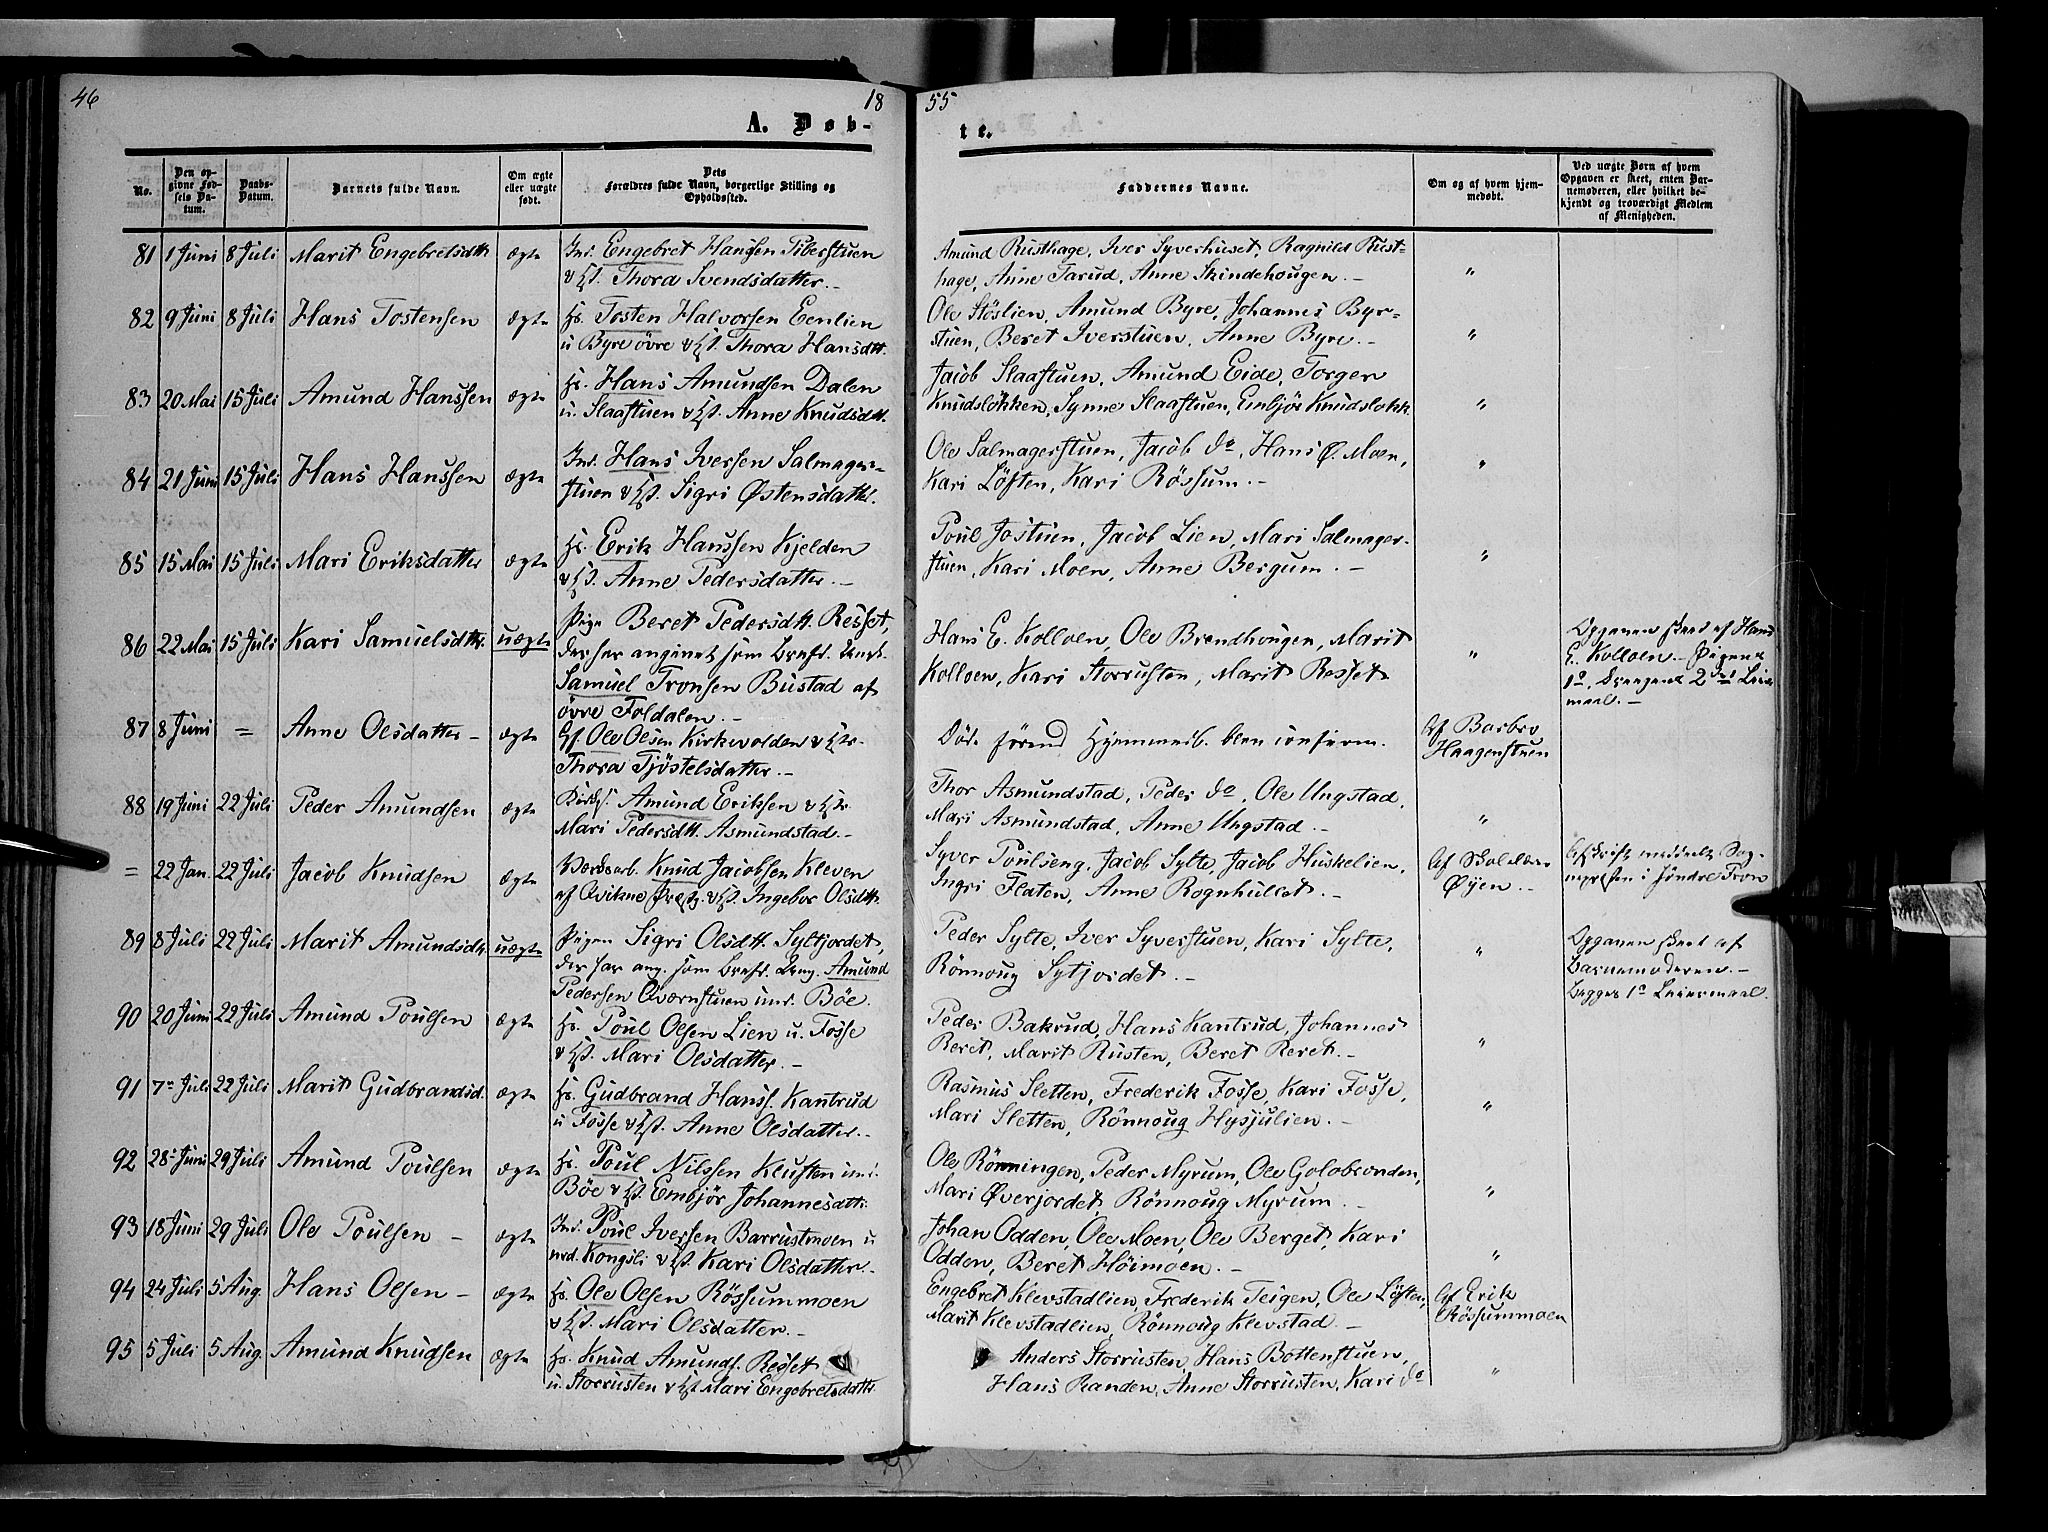 46
18
55
A. Døb-
te.
No.
Den op-
givne Fød-
sels Da-
tum.
Daabs-
Datum.
Barnets fulde Navn.
Om ægte
eller uægte
født.
Dets
Forældres fulde Navn, borgerlige Stilling og
Opholdssted.
Faddernes Navne.
Om og af hvem hjem-
medøbt.
Ved uægte Børn af hvem
Opgaven er skeet, enten Bar-
nemoderen, eller hvilket be-
kjendt og troværdigt Medlem
af Menigheden.
81 1 Juni 8 Juli Marit Engebretsdtt. ægte Ind. Engebret Hanssen Piberstuen
& Hst. Thora Svendsdatter. -
Amund Rusthage, Iver Syverhuset, Ragnild Rust-
hage, Anne Tarud, Anne Skindehougen. - "
82 9 Juni 8 Juli Hans Tostensen ægte Hs. Tosten Halvorsen Eenlien
u Byre övre & Hst. Thora Hansdtt.
Ole Stöslien, Amund Byre, Johannes Byr-
stuen, Beret Iverstuen, Anne Byre. - "
83 20 Mai 15 Juli Amund Hanssen ægte Hs. Hans Amundsen Dalen
u. Slaastuen & Hst. Anne Knudsdtt.
Jacob Slaastuen, Amund Eide, Torger
Knudslökken, Synne Slaastuen, Embjör Knudslökk. "
84 21 Juni 15 Juli Hans Hanssen ægte Ind. Hans Iversen Salmager-
stuen & Hst. Sigri Østensdatter.
Ole Salmagerstuen, Jacob do, Hans Ø. Moen,
Kari Löften, Kari Rössum. - "
85 15 Mai 15 Juli Mari Eriksdatter ægte Hs. Erik Hanssen Kjelden
& Hst. Anne Pedersdatter. -
Poul Jostuen, Jacob Lien, Mari Salmager-
stuen, Kari Moen, Anne Bergum. - "
86 22 Mai 15 Juli Kari Samuelsdtr. uægte Pige Beret Pedersdtt. Resset,
der har angivet som Barnef. Ungk.
Samuel Tronsen Bustad af
övre Foldalen. -
Hans E. Kolloen, Ole Brendhougen, Marit
Kolloen, Kari Storrusten, Marit Resset "
Opgaven skeet af Hans
E. Kolloen - Pigens
1e, Drengens 2det Leier-
maal. -
87 8 Juni = Anne Olsdatter - ægte Gf. Ole Olsen Kirkevolden & Hstr.
Thora Tjöstelsdatter. -
Död förend Hjemmedb. blev confirm.
Af Barbro
Haagenstuen
88 19 Juni 22 Juli Peder Amundsen ægte Amund Eriksen & Hstr.
Mari Pedersdtt. Asmundstad. -
Thor Asmundstad, Peder do, Ole Ungstad,
Mari Asmundstad, Anne Ungstad. - "
= 22 Jan. 22 Juli Jacob Knudsen ægte Værksarb. Knud Jacobsen Kleven
af Qvikne Præstg. & Hst. Ingebor Olsdtt.
Syver Poulseng, Jacob Sylte, Jacob Huskelien,
Ingri Flaten, Anne Rognhullet. -
Af Skolelær
Øyen. -
Afskrift meddelt Sog-
nepræsten i söndre Fron
89 8 Juli 22 Juli Marit Amundsdtr. uægte Pigen Sigri Olsdtt. Syltjordet,
der har ang. som Barnef. Ung. Amund
Pedersen Qværnstuen und. Böe.
Peder Sylte, Iver Syverstuen, Kari Sylte,
Rönnoug Sytjordet. - "
Opgaven skeet af
Barnemoderen. -
Begges 1e Leiermaal.
90 20 Juni 22 Juli Amund Poulsen ægte Hs. Poul Olsen Lien u. Fosse
& Hst. Mari Olsdatter. -
Peder Bakrud, Hans Kantrud, Johannes
Beret, Marit Rusten, Beret Beret. - "
91 7de Juli 22 Juli Marit Gudbrandsd. ægte Hs. Gudbrand Hanss. Kantrud
u Fosse & Hst. Anne Olsdatter. -
Rasmus Sletten, Frederik Fosse, Kari Fosse,
Mari Sletten, Rönnoug Hysjulien. - "
92 28de Juni 29 Juli Amund Poulsen ægte Hs. Poul Nilssen Klusten und.
Böe & Hst. Embjör Johannesdatter.
Ole Rönningen, Peder Myrum, Ole Golobranden,
Mari Øverjordet, Rönnoug Myrum. - "
93 18 Juni 29 Juli Ole Poulsen - ægte Ind. Poul Iversen Barrustmoen u
ned. Kongsli & Hst. Kari Olsdatter. -
Johan Odden, Ole Moen, Ole Berget, Kari
Odden, Beret Höimoen. - "
94 24 Juli 5 Aug. Hans Olsen - ægte Hs. Ole Olsen Rössummoen
& Hst. Mari Olsdatter. -
Engebret Klevstadlien, Frederik Teigen, Ole Löften,
Marit Klevstadlien, Rönnoug Klevstad. -
Af Erik
Rössummoen
95 5 Juli 5 Aug. Amund Knudsen ægte Hs. Knud Amunds. Resset
u. Storrusten & Hst. Mari Engebretsdatter
Anders Storrusten, Hans Bottenstuen,
Hans Randen, Anne Storrusten, Kari do "